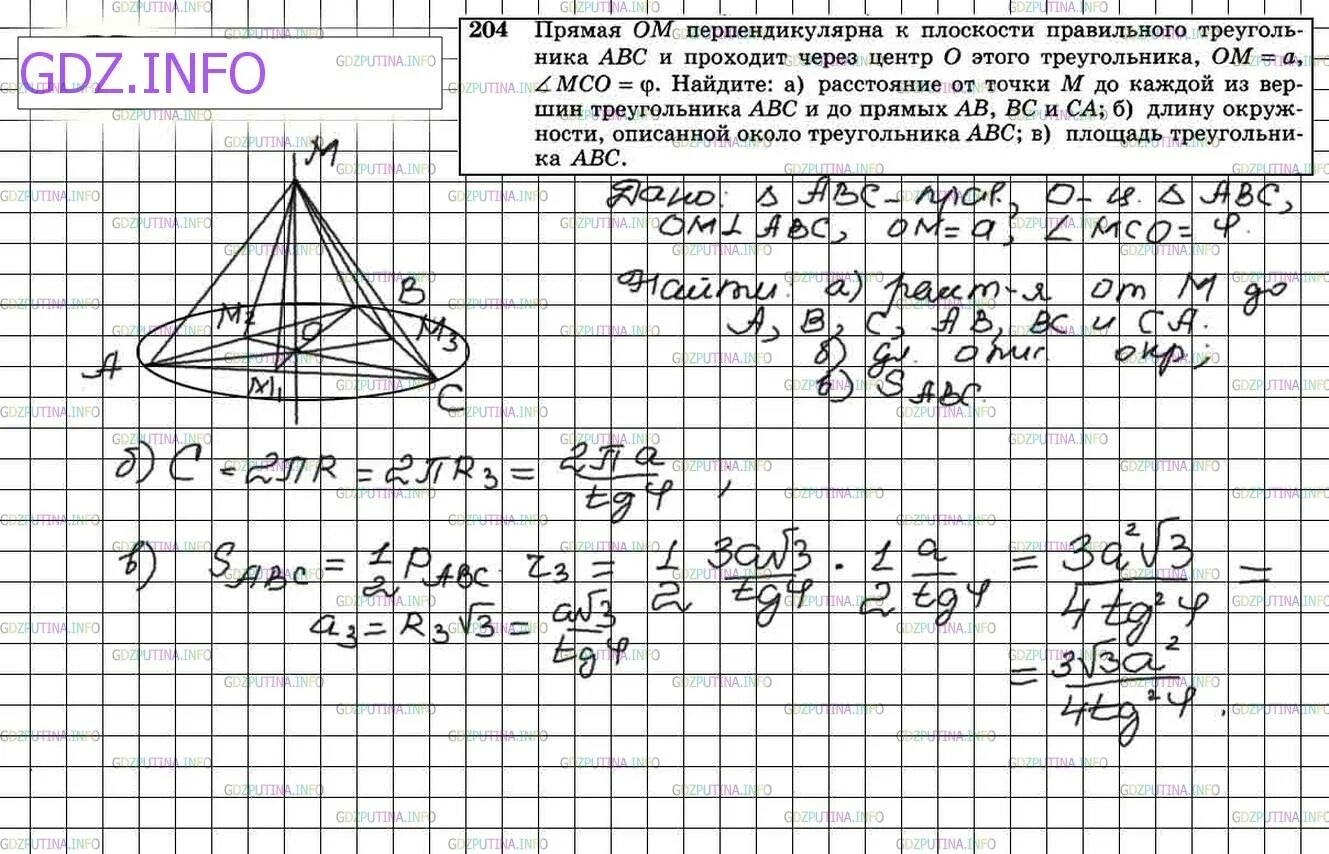 GDZ.INFO
204 Прямая OM перпендикулярна к плоскости правильного треуголь-
ника ABC и проходит через центр O этого треугольника, OM = a,
∠MCO = φ. Найдите: а) расстояние от точки M до каждой из вер-
шин треугольника ABC и до прямых AB, BC и CA; б) длину окруж-
ности, описанной около треугольника ABC; в) площадь треугольни-
ка ABC.
Дано: △ ABC – прав., O – ц. △ ABC,
OM⊥ABC, OM = a, ∠MCO = φ.
Найти: а) расст-я от M до
A, B, C, AB, BC и CA.
б) дл. опис. окр;
в) S ABC.
M
B
M2
O
M3
A
M1
C
б) C = 2πR = 2πR3 = 2πa / tgφ ;
в) S ABC = 1/2 P ABC · r3 = 1/2 3a√3/tgφ · 1/2 a/tgφ = 3a²√3 / 4tg²φ =
a3 = R3√3 = a√3 / tgφ
= 3√3a² / 4tg²φ .
GDZPUTINA.INFO